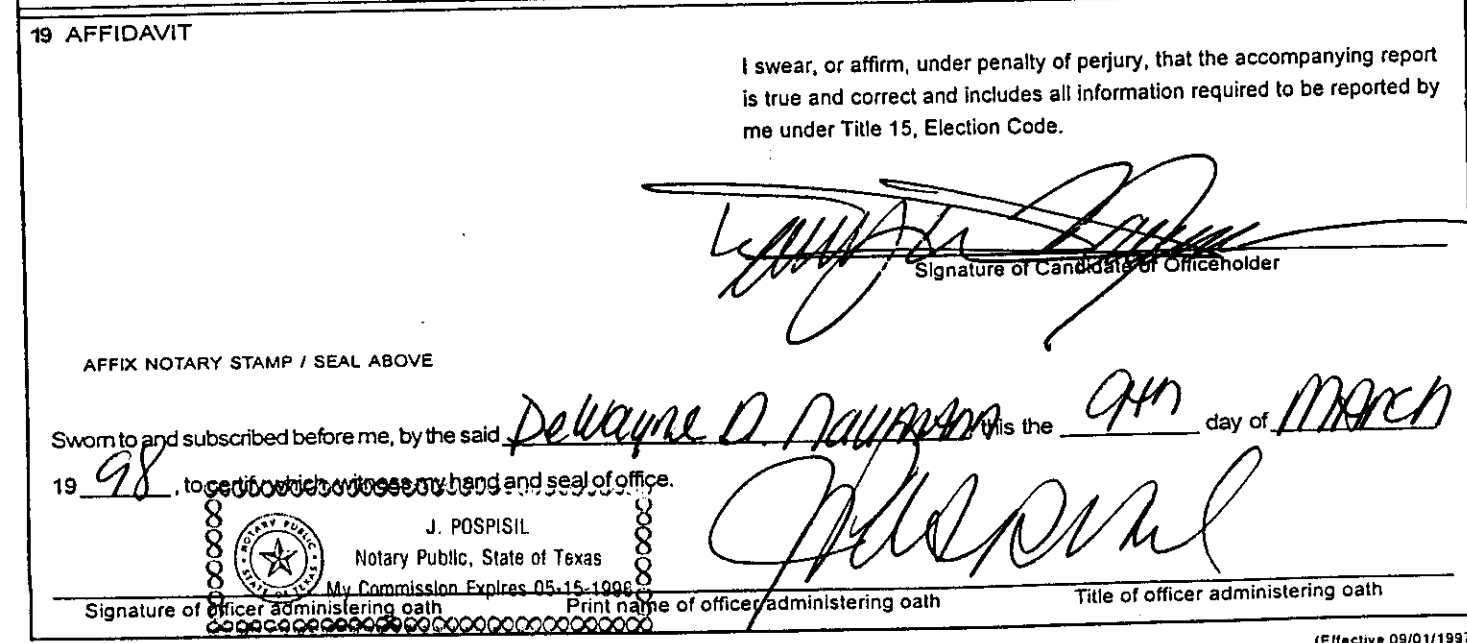 19 AFFIDAVIT
I swear, or affirm, under penalty of perjury, that the accompanying report
is true and correct and includes all information required to be reported by
me under Title 15, Election Code.
Signature of Candidate or Officeholder
AFFIX NOTARY STAMP / SEAL ABOVE
Sworn to and subscribed before me, by the said DeWayne D. Naumann, this the 9th day of March
19 98, to certify which, witness my hand and seal of office.
J. POSPISIL
NOTARY PUBLIC
STATE OF TEXAS
Notary Public, State of Texas
My Commission Expires 05-15-1998
J Pospisil
Signature of officer administering oath Print name of officer administering oath Title of officer administering oath
(Effective 09/01/199